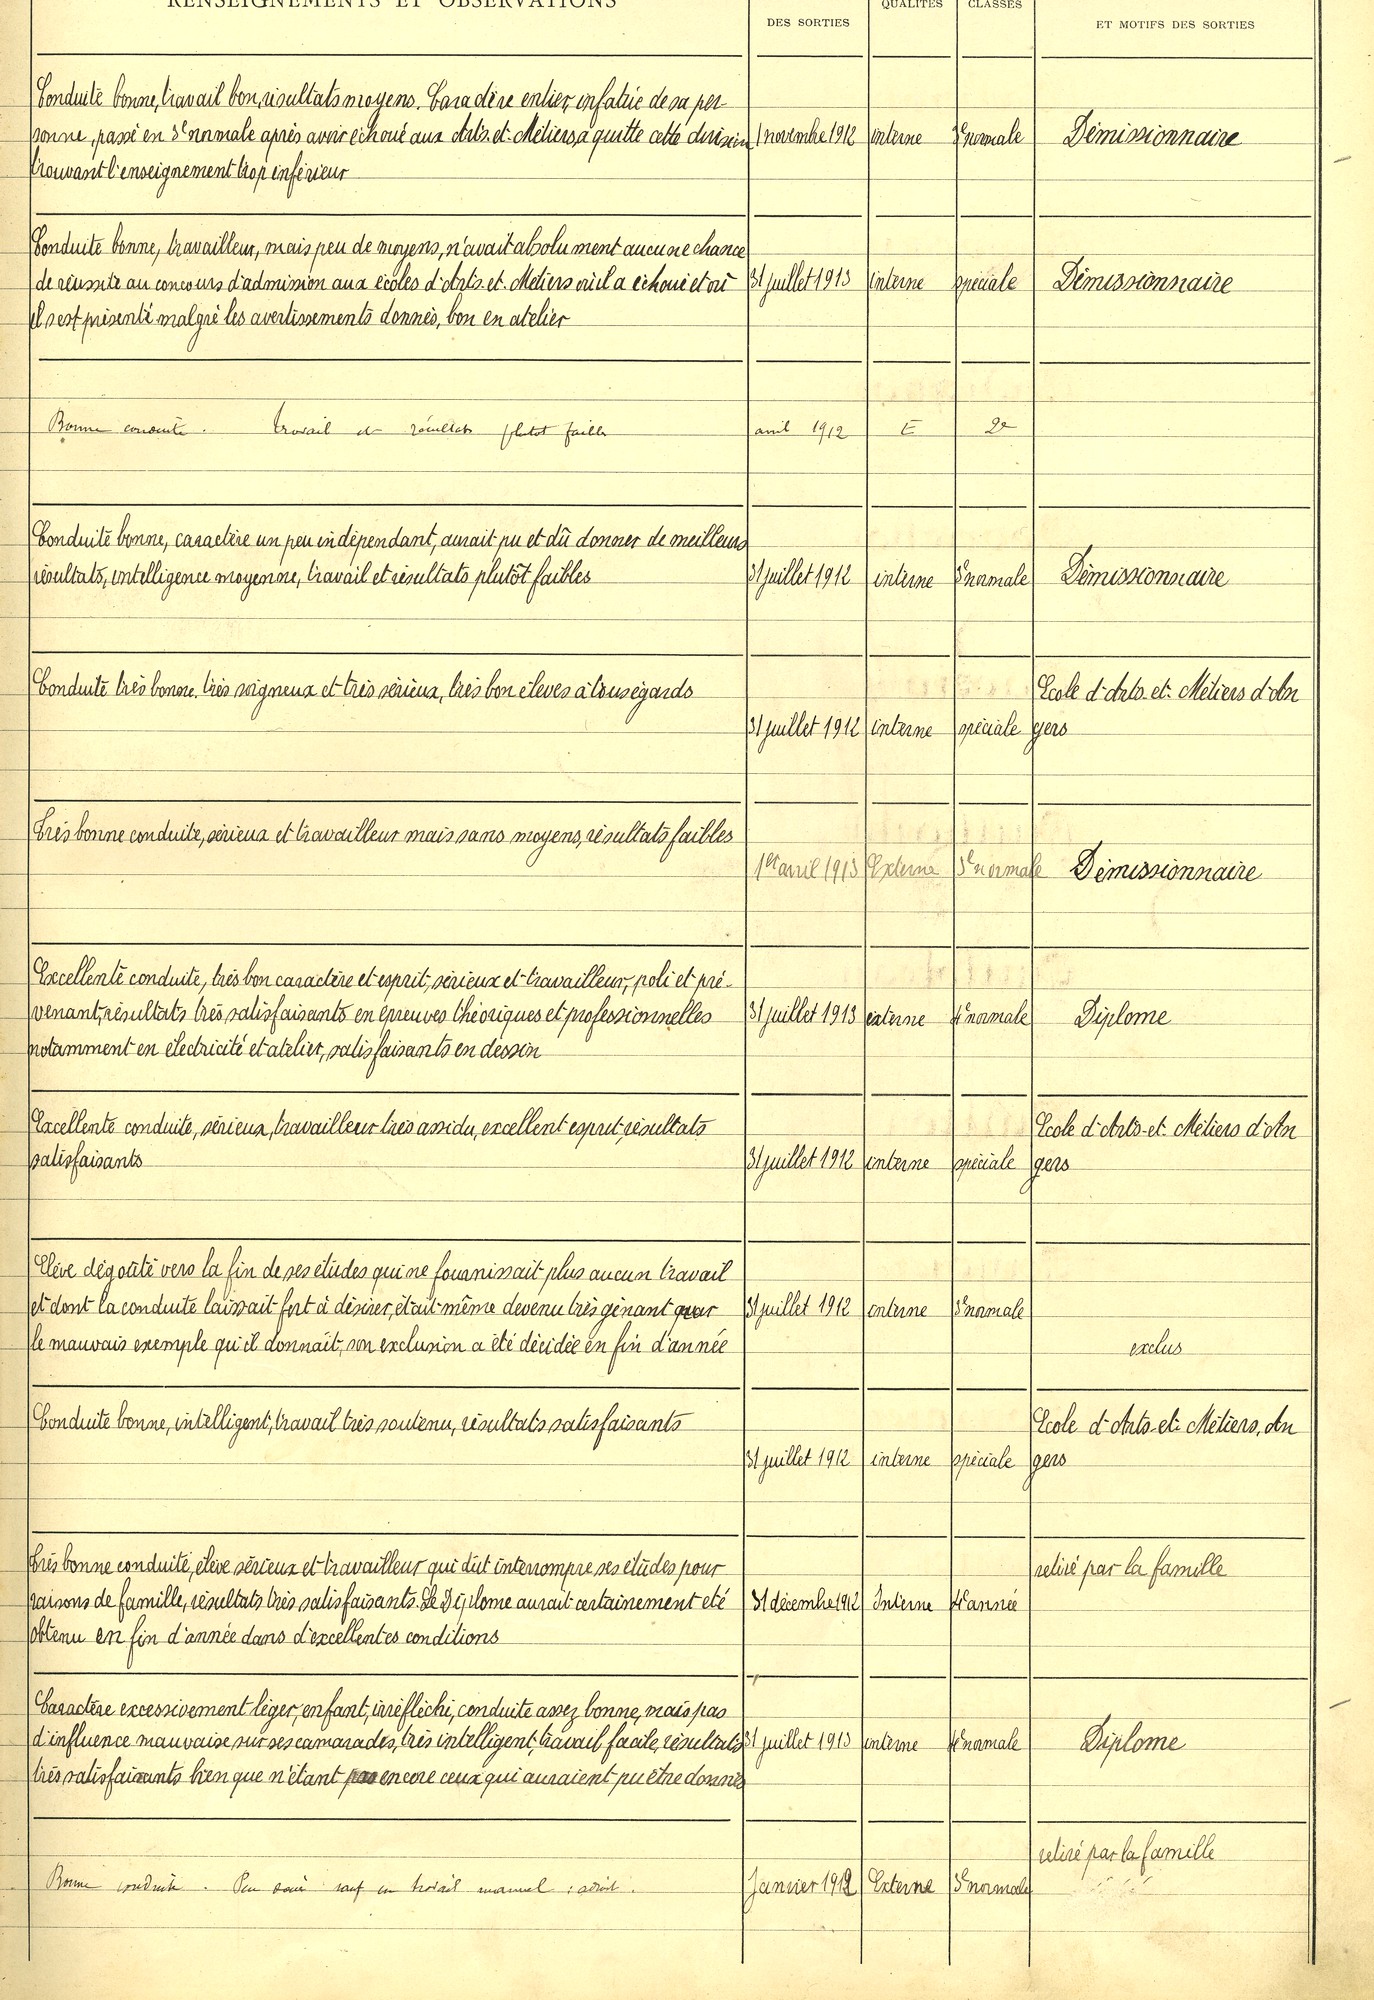 RENSEIGNEMENTS ET OBSERVATIONS
DES SORTIES
QUALITÉS
CLASSES
ET MOTIFS DES SORTIES
Conduite bonne, travail bon, résultats moyens. Caractère entier, infatué de sa per-
sonne, passé en 3e normale après avoir échoué aux Arts-et-Métiers, a quitté cette division 1 novembre 1912 interne 3e normale Démissionnaire
trouvant l'enseignement trop inférieur
Conduite bonne, travailleur, mais peu de moyens, n'avait absolument aucune chance
de réussite au concours d'admission aux écoles d'Arts-et-Métiers où il a échoué et où 31 juillet 1913 interne spéciale Démissionnaire
il s'est présenté malgré les avertissements donnés, bon en atelier
Bonne conduite. Travail et résultats plutot faibles avril 1912 E 2e
Conduite bonne, caractère un peu indépendant, aurait pu et dû donner de meilleurs
résultats, intelligence moyenne, travail et résultats plutôt faibles 31 juillet 1912 interne 3e normale Démissionnaire
Conduite très bonne, très soigneux et très sérieux, très bon élèves à tous égards Ecole d'Arts-et-Métiers d'An
31 juillet 1912 interne spéciale gers
Très bonne conduite, sérieux et travailleur mais sans moyens, résultats faibles
1er avril 1913 Externe 3e normale Démissionnaire
Excellente conduite, très bon caractère et esprit, sérieux et travailleur, poli et pré-
venant, résultats très satisfaisants en épreuves théoriques et professionnelles 31 juillet 1913 externe 4e normale Diplome
notamment en électricité et atelier, satisfaisants en dessin
Excellente conduite, sérieux, travailleur très assidu, excellent esprit, résultats Ecole d'Arts-et-Métiers d'An
satisfaisants 31 juillet 1912 interne spéciale gers
Elève dégoûté vers la fin de ses études qui ne fournissait plus aucun travail
et dont la conduite laissait fort à désirer, était même devenu très gênant par 31 juillet 1912 interne 3e normale
le mauvais exemple qu'il donnait, son exclusion a été décidée en fin d'année exclus
Conduite bonne, intelligent, travail très soutenu, résultats satisfaisants Ecole d'Arts-et-Métiers, An
31 juillet 1912 interne spéciale gers
Très bonne conduite, élève sérieux et travailleur qui dût interrompre ses études pour retiré par la famille
raisons de famille, résultats très satisfaisants. Le Diplome aurait certainement été 31 décembre 1912 Interne 4e année
obtenu en fin d'année dans d'excellentes conditions
Caractère excessivement léger, enfant, irréfléchi, conduite assez bonne, mais pas
d'influence mauvaise sur ses camarades, très intelligent, travail facile, résultats 31 juillet 1913 interne 4e normale Diplome
très satisfaisants bien que n'étant pas encore ceux qui auraient pu être donnés
retiré par la famille
Bonne conduite. Peu doué sauf en travail manuel : adroit. Janvier 1912 Externe 3e normale